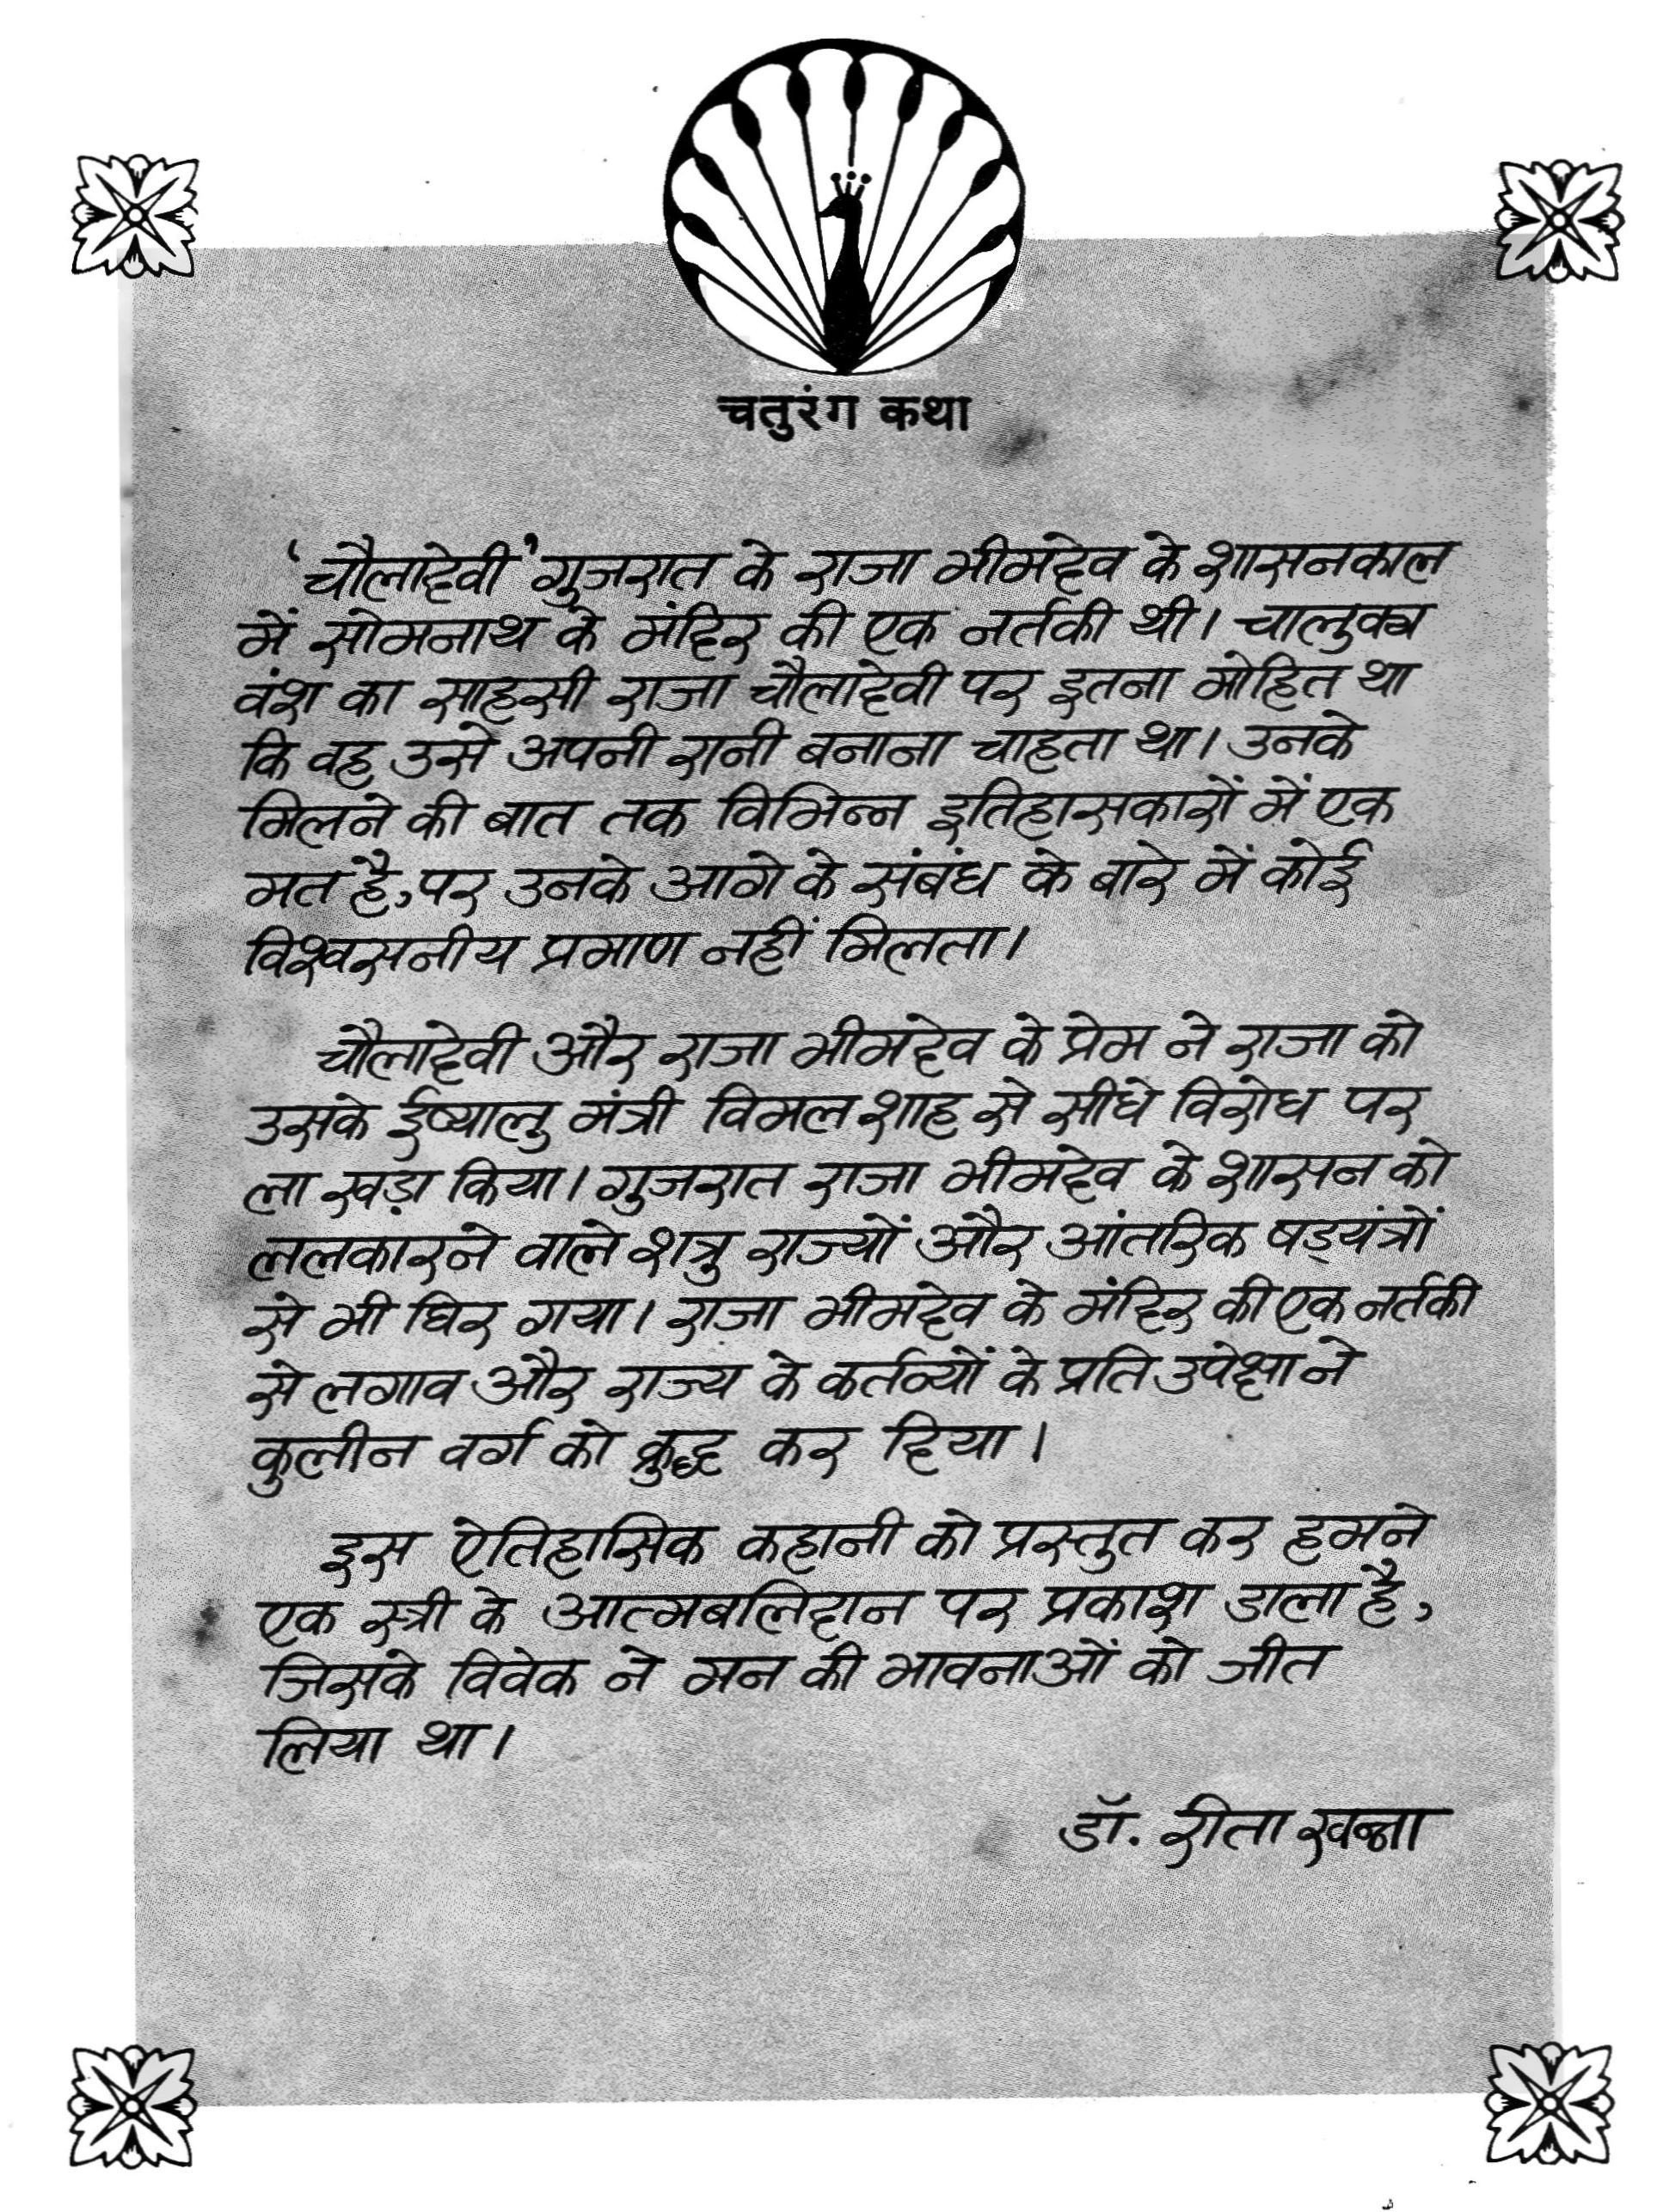 चतुरंग कथा
‘चौलादेवी’ गुजरात के राजा भीमदेव के शासनकाल
में सोमनाथ के मंदिर की एक नर्तकी थी। चालुक्य
वंश का साहसी राजा चौलादेवी पर इतना मोहित था
कि वह उसे अपनी रानी बनाना चाहता था। उनके
मिलने की बात तक विभिन्न इतिहासकारों में एक
मत है, पर उनके आगे के संबंध के बारे में कोई
विश्वसनीय प्रमाण नहीं मिलता।
चौलादेवी और राजा भीमदेव के प्रेम ने राजा को
उसके ईष्यालु मंत्री विमल शाह से सीधे विरोध पर
ला खड़ा किया। गुजरात राजा भीमदेव के शासन को
ललकारने वाले शत्रु राज्यों और आंतरिक षड्यंत्रों
से भी घिर गया। राजा भीमदेव के मंदिर की एक नर्तकी
से लगाव और राज्य के कर्तव्यों के प्रति उपेक्षा ने
कुलीन वर्ग को क्रुद्ध कर दिया।
इस ऐतिहासिक कहानी को प्रस्तुत कर हमने
एक स्त्री के आत्मबलिदान पर प्रकाश डाला है,
जिसके विवेक ने मन की भावनाओं को जीत
लिया था।
डॉ. रीता खन्ना